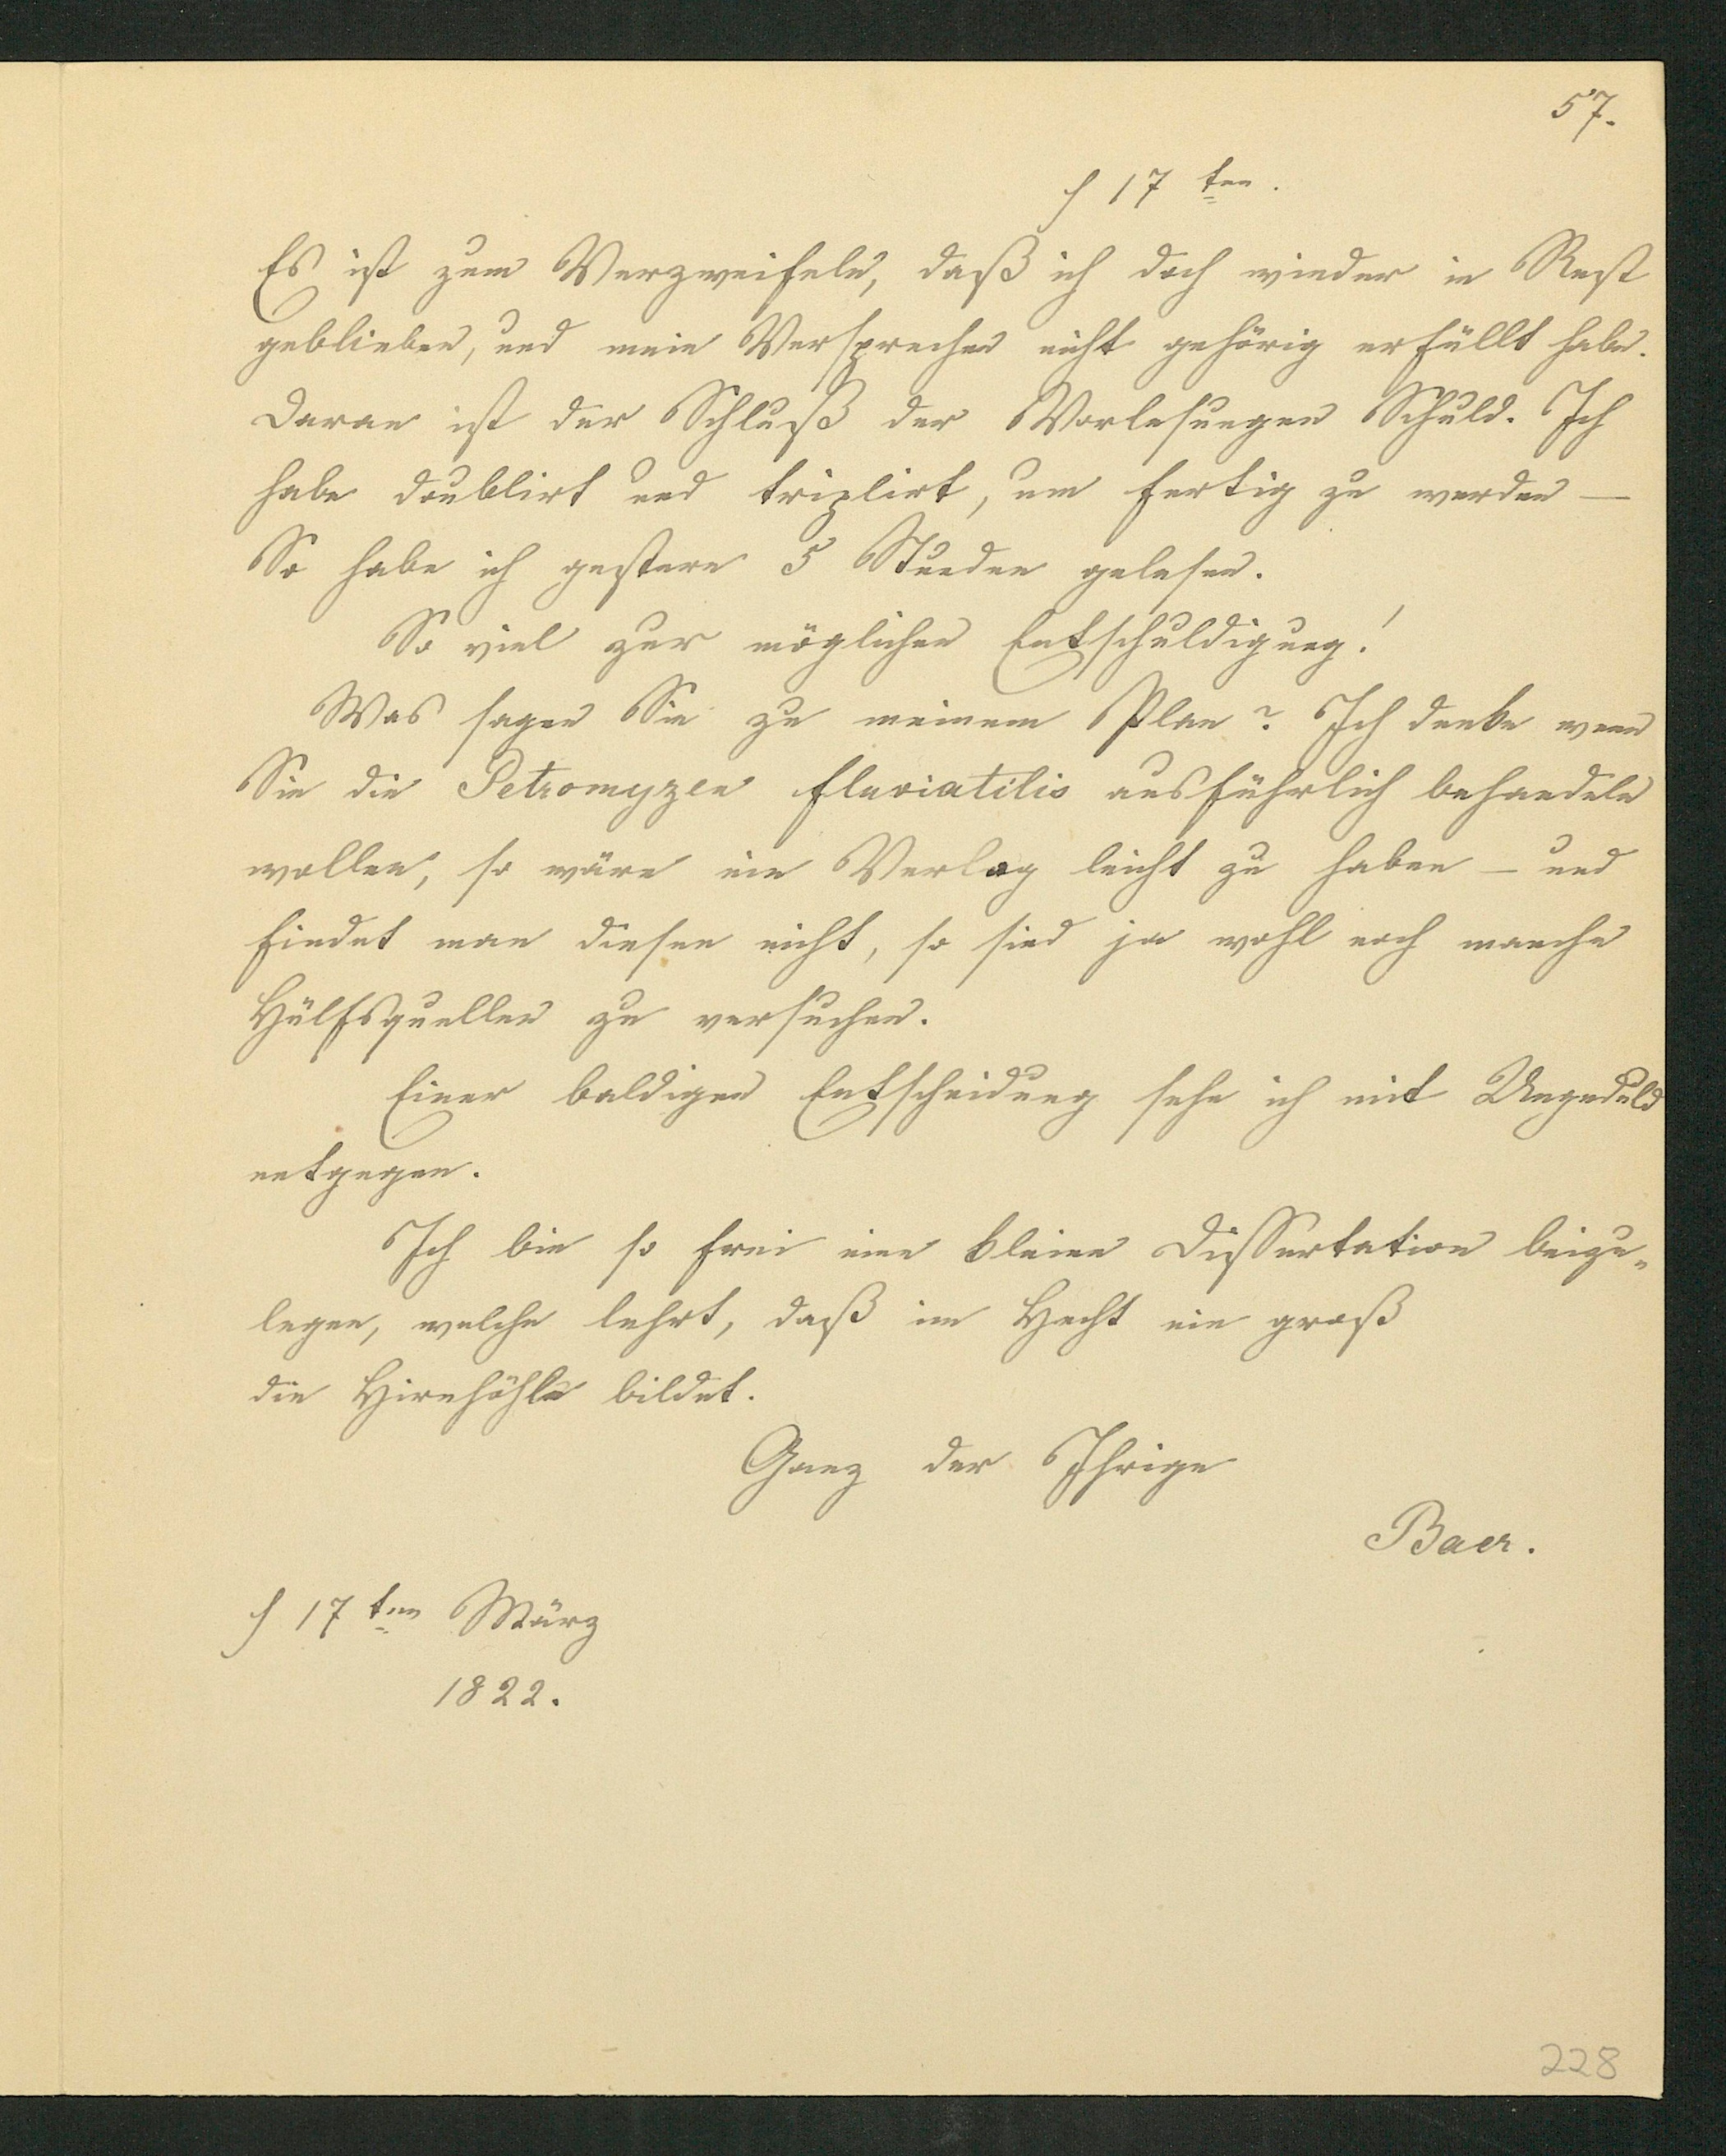 57.
d 17 ten.
Es ist zum Verzweifeln, daß ich doch wieder in Rest
geblieben, und mein Versprechen nicht gehörig erfüllt habe.
Daran ist der Schluß der Vorlesungen Schuld. Ich
habe doublirt und triplirt, um fertig zu werden —
So habe ich gestern 5 Stunden gelesen.
So viel zur möglichen Entschuldigung!
Was sagen Sie zu meinem Plan? Ich denke wenn
Sie die Petromyzen fluviatilis ausführlich behandeln
wollen, so wäre ein Verlag leicht zu haben — und
findet man diesen nicht, so sind ja wohl noch manche
Hülfsquellen zu versuchen.
Einer baldigen Entscheidung sehe ich mit Ungeduld
entgegen.
Ich bin so frei eine kleine Dissertation beizu-
legen, welche lehrt, daß im Hecht ein groß
die Hirnhöhle bildet.
Ganz der Ihrige
Baer.
d 17 ten März
1822.
228